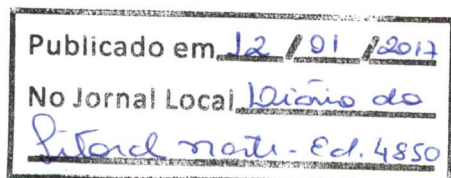 Publicado em 12 / 01 / 2017
No Jornal Local Diário do
Litoral norte - Ed. 4850